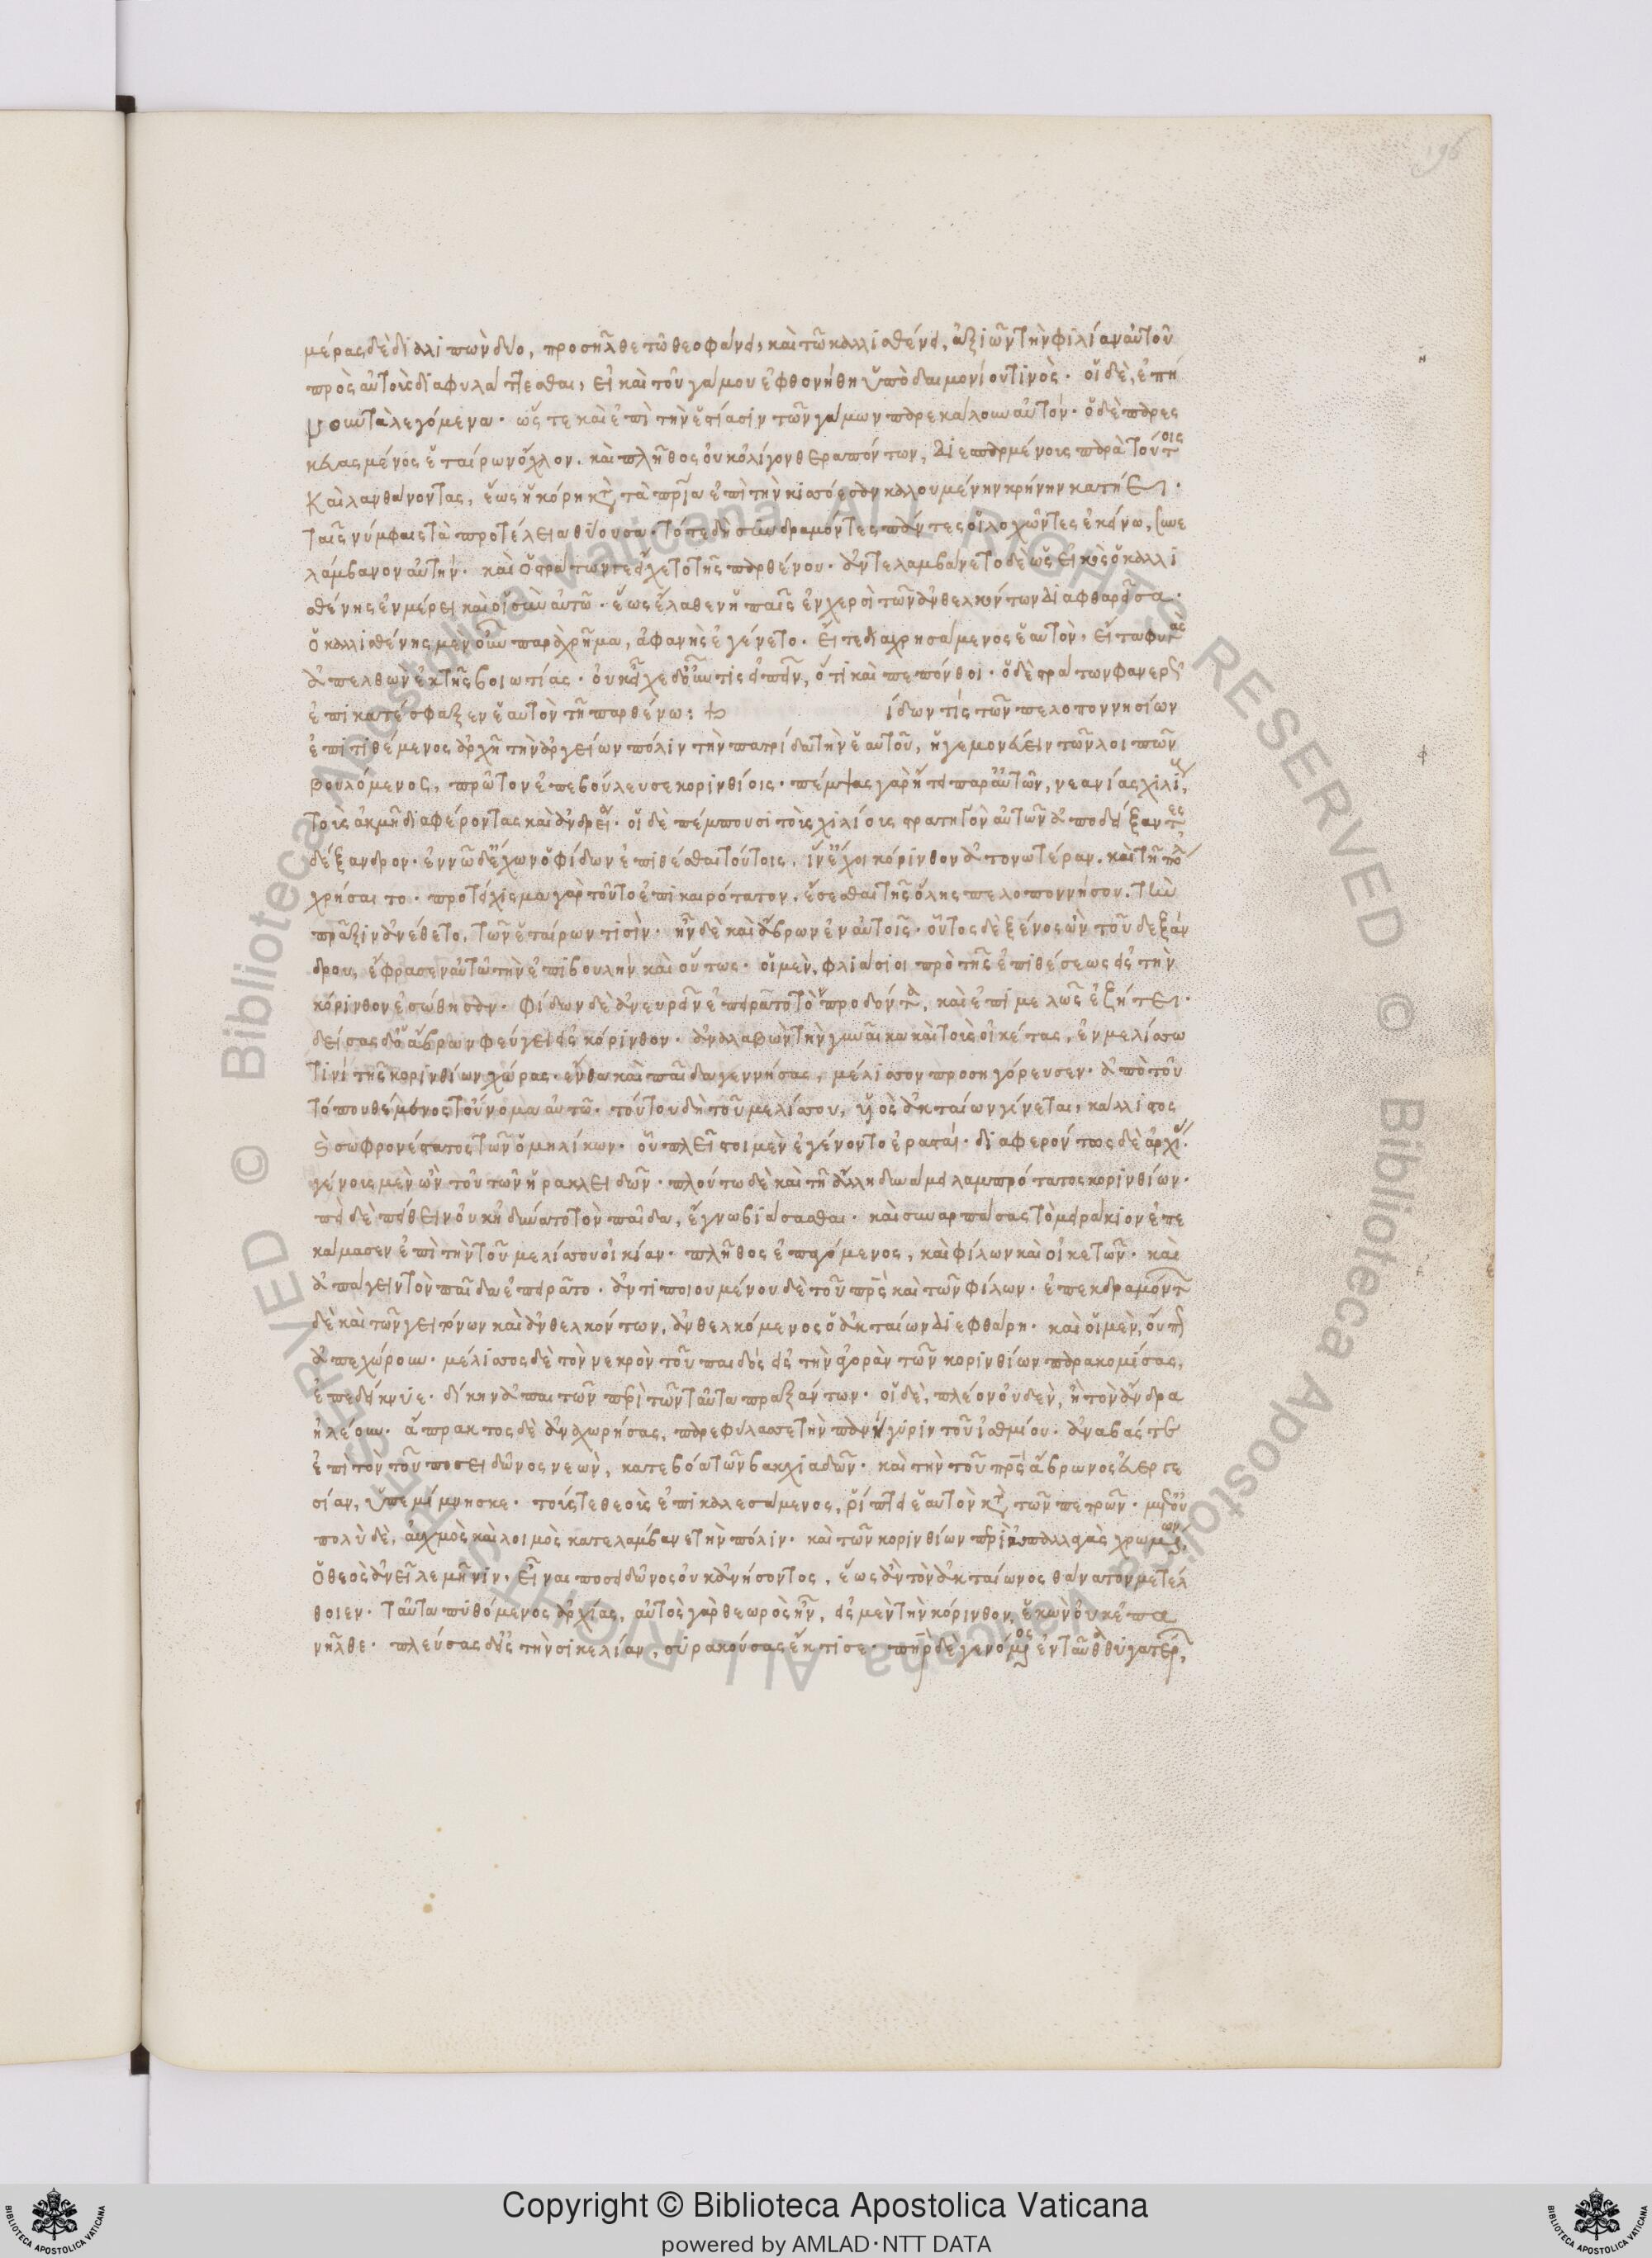 196
μέρας δὲ διαλιπὼν δύο, προσῆλθε τῶ θεοφάνει, καὶ τῶ καλλισθένει, ἀξιῶν τὴν φιλίαν αὐτοῦ
πρὸς αὐτοὺς διαφυλάττεσθαι, εἰ καὶ τοῦ γάμου ἐφθονήθη ὑπὸ δαιμονίου τινὸς· οἱ δὲ, ἐπή
νουν τὰ λεγόμενα· ὥστε καὶ ἐπὶ τὴν ἑστίασιν τῶν γάμων παρεκάλουν αὐτόν· ὁ δὲ παρες
κευασμένος ἑταίρων ὄχλον, καὶ πλῆθος οὐκ ὀλίγον θεραπόντων, διεσπαρμένοις παρὰ τούτοις
καὶ λανθάνοντας, ἕως ἡ κόρη κατὰ τὰ πάτρια ἐπὶ τὴν κισσόεσσαν καλουμένην κρήνην κατήει·
ταῖς νύμφαις τὰ προτέλεια θύουσα· τότε δὴ συνδραμόντες πάντες οἱ λοχῶντες ἐκείνω, συνε
λάμβανον αὐτήν· καὶ ὁ στράτων τε εἴχετο τῆς παρθένου· ἀντελαμβάνετο δὲ ὡς εἰκὸς ὁ καλλι
σθένης ἐν μέρει καὶ οἱ σὺν αὐτῶ· ἕως ἔλαθεν ἡ παῖς ἐν χερσὶ τῶν ἀνθελκόντων διαφθαρεῖσα·
ὁ καλλισθένης μὲν οὖν παραχρῆμα, ἀφανὴς ἐγένετο· εἴτε διαχρησάμενος ἑαυτὸν, εἴτε φυγὰς
ἀπελθὼν ἐκ τῆς βοιωτίας· οὐκ εἶχε δ' οὖν τις εἰπεῖν, ὅτι καὶ πεπόνθοι· ὁ δὲ στράτων φανερῶς
ἐπικατέσφαξεν ἑαυτὸν τῆ παρθένω: ίδων τίς τῶν πελοποννησίων
ἐπιτιθέμενος ἀρχῆ τὴν ἀργείων πόλιν τὴν πατρίδα τὴν ἑαυτοῦ, ἡγεμονεύειν τῶν λοιπῶν
βουλόμενος, πρῶτον ἐπεβούλευσε κορινθίοις· πέμψας γὰρ ἤτει παρ' αὐτῶν, νεανίας χιλίους
τοὺς ἀκμῆ διαφέροντας καὶ ἀνδρείᾳ· οἱ δὲ πέμπουσι τοὺς χιλίους στρατηγὸν αὐτῶν ἀποδείξαντες
δέξανδρον· ἐν νῶ δὲ ἔχων ὁ φίδων ἐπιθέσθαι τούτοις, ἵν' ἔχοι κόρινθον ἀτονωτέραν, καὶ τῆ πόλει
χρήσαιτο· προτείχισμα γὰρ τοῦτο ἐπικαιρότατον, ἔσεσθαι τῆς ὅλης πελοποννήσου, τὴν
πρᾶξιν ἀνέθετο, τῶν ἑταίρων τισὶν· ἦν δὲ καὶ ἅβρων ἐν αὐτοῖς· οὗτος δὲ ξένος ὢν τοῦ δεξάν
δρου, ἔφρασεν αὐτῶ τὴν ἐπιβουλὴν καὶ οὕτως· οἱ μὲν, φλιάσιοι πρὸ τῆς ἐπιθέσεως εἰς τὴν
κόρινθον ἐσώθησαν· φίδων δὲ ἀνευρεῖν ἐπειρᾶτο τὸν προδόντα, καὶ ἐπιμελῶς ἐζήτει·
δείσας δ' ὁ ἅβρων φεύγει εἰς κόρινθον· ἀναλαβὼν τὴν γυναῖκα καὶ τοὺς οἰκέτας, ἐν μελίσσω
τινὶ τῆς κορινθίων χώρας· ἔνθα καὶ παῖδα γεννήσας, μέλισσον προσηγόρευσεν· ἀπὸ τοῦ
τόπου θέμενος τοὔνομα αὐτῶ· τούτου δὴ τοῦ μελίσσου, υἱὸς ἀκταίων γίνεται, κάλλιστος
καὶ σωφρονέστατος τῶν ὁμηλίκων· οὗ πλεῖστοι μὲν ἐγένοντο ἐρασταί· διαφερόντως δὲ ἀρχίας·
γένους μὲν ὢν τοῦ τῶν ἡρακλειδῶν· πλούτω δὲ καὶ τῆ ἄλλη δυνάμει λαμπρότατος κορινθίων·
πεὶ δὲ πείθειν οὐκ ἠδύνατο τὸν παῖδα, ἔγνω βιάσασθαι· καὶ συναρπάσας τὸ μειράκιον ἐπε
κώμασεν ἐπὶ τὴν τοῦ μελίσσου οἰκίαν· πλῆθος ἐπαγόμενος, καὶ φίλων καὶ οἰκετῶν· καὶ
ἀπάγειν τὸν παῖδα ἐπειρᾶτο· ἀντιποιουμένου δὲ τοῦ πρς καὶ τῶν φίλων· ἐπεκδραμόντων
δὲ καὶ τῶν γειτόνων καὶ ἀνθελκόντων, ἀνθελκόμενος ὁ ἀκταίων διεφθάρη· καὶ οἱ μὲν, οὕτως
ἀπεχώρουν· μέλισσος δὲ τὸν νεκρὸν τοῦ παιδὸς εἰς τὴν ἀγορὰν τῶν κορινθίων παρακομίσας,
ἐπεδείκνυε· δίκην ἀπαιτῶν παρὰ τῶν ταῦτα πραξάντων· οἱ δὲ, πλέον οὐδὲν, ἢ τὸν ἄνδρα
ἠλέουν· ἄπρακτος δὲ ἀναχωρήσας, παρεφύλασσε τὴν πανήγυριν τοῦ ἰσθμίου· ἀναβάς τε
ἐπὶ τὸν τοῦ ποσειδῶνος νεὼν, κατεβόα τῶν βακχιαδῶν· καὶ τὴν τοῦ πρς ἅβρωνος εὐεργε
σίαν, ὑπεμίμνησκε· τούς τε θεοὺς ἐπικαλεσάμενος, ῥίπτει ἑαυτὸν κατὰ τῶν πετρῶν· μετ' οὐ
πολὺ δὲ, αὐχμὸς καὶ λοιμὸς κατελάμβανε τὴν πόλιν· καὶ τῶν κορινθίων περὶ ἀπαλλαγὰς χρωμένων
ὁ θεὸς ἀνεῖλε μῆνιν, εἶναι ποσειδῶνος οὐκ ἀνήσοντος, ἕως ἂν τὸν ἀκταίωνος θάνατον μετέλ
θοιεν· ταῦτα πυθόμενος ἀρχίας, αὐτὸς γὰρ θεωρὸς ἦν, εἰς μὲν τὴν κόρινθον, ἑκὼν οὐκ ἐπα
νῆλθε· πλεύσας δ' εἰς τὴν σικελίαν, συρακούσας ἔκτισε· πὴρ δὲ γενόμενος ἐνταῦθα θυγατέρων
Copyright © Biblioteca Apostolica Vaticana
powered by AMLAD·NTT DATA